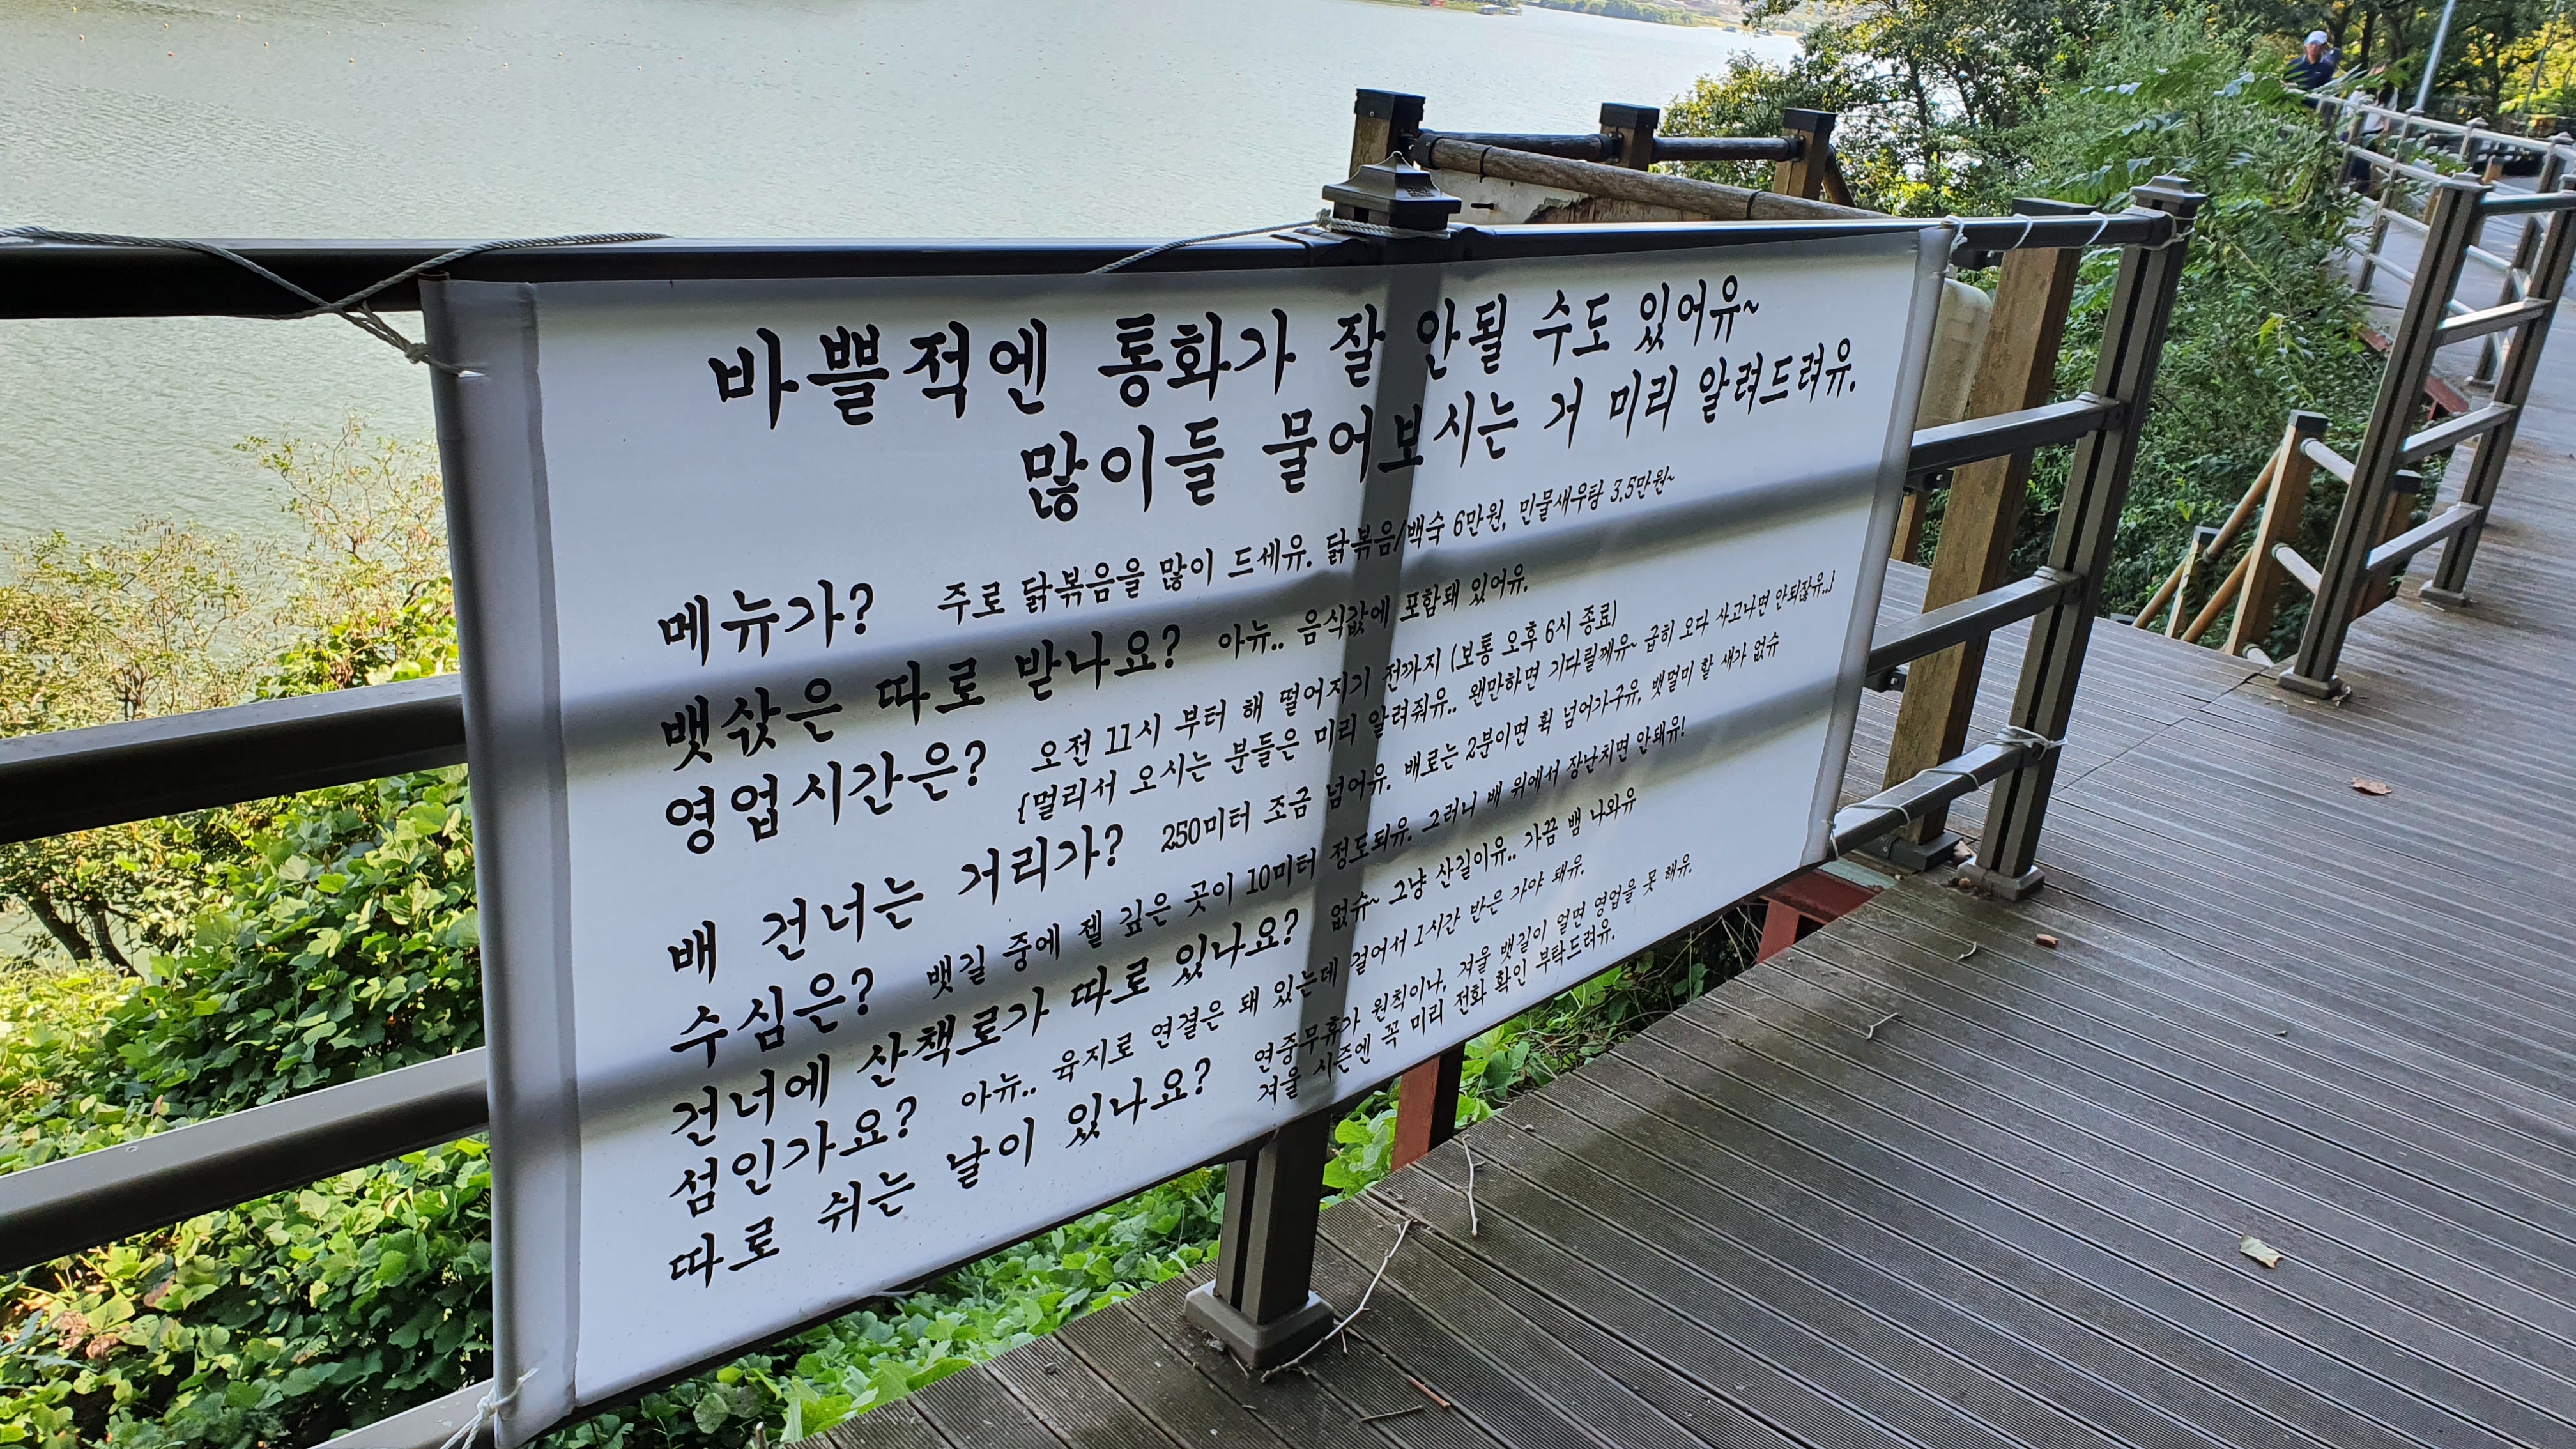 바쁠적엔 통화가 잘 안될 수도 있어유~
많이들 물어보시는 거 미리 알려드려유.
메뉴가? 주로 닭볶음을 많이 드세유. 닭볶음/백숙 6만원, 민물새우탕 3.5만원~
뱃삯은 따로 받나요? 아뉴.. 음식값에 포함돼 있어유.
영업시간은? 오전 11시 부터 해 떨어지기 전까지 (보통 오후 6시 종료)
{멀리서 오시는 분들은 미리 알려줘유.. 왠만하면 기다릴께유~ 급히 오다 사고나면 안되잖유..}
배 건너는 거리가? 250미터 조금 넘어유. 배로는 2분이면 휙 넘어가구유, 뱃멀미 할 새가 없슈
수심은? 뱃길 중에 젤 깊은 곳이 10미터 정도되유. 그러니 배 위에서 장난치면 안돼유!
건너에 산책로가 따로 있나요? 없슈~ 그냥 산길이유.. 가끔 뱀 나와유
섬인가요? 아뉴.. 육지로 연결은 돼 있는데 걸어서 1시간 반은 가야 돼유.
따로 쉬는 날이 있나요? 연중무휴가 원칙이나, 겨울 뱃길이 얼면 영업을 못 해유.
겨울 시즌엔 꼭 미리 전화 확인 부탁드려유.